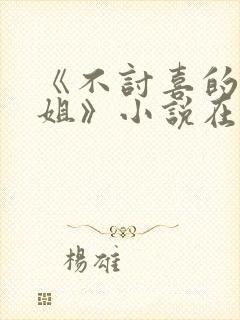 《不討喜的
姐》小說在
楊雄